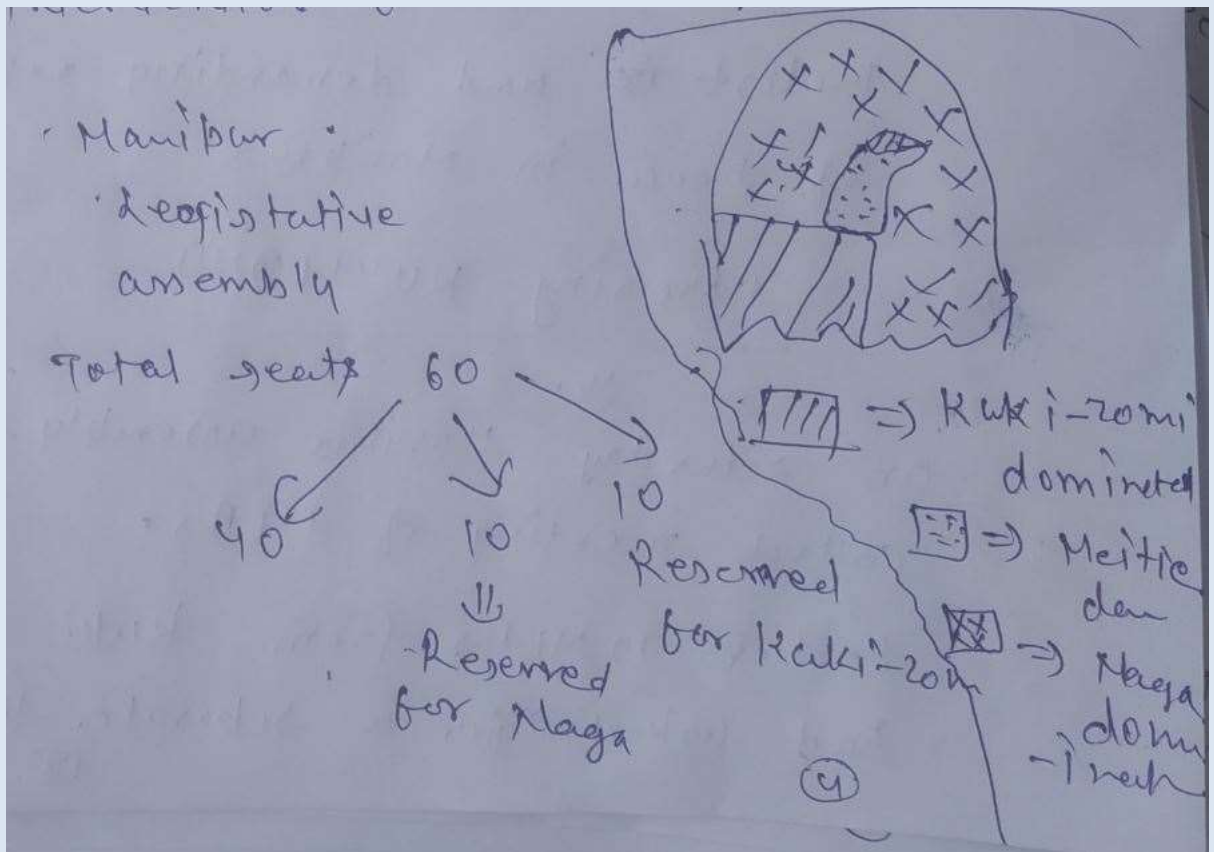 Manipur
Legistative
assembly
Total seats 60
40
10
10
Reserved
for Naga
Reserved
for Kuki-zom
⇒ Kuki-zomi
domineted
⇒ Meitie
dom
⇒ Naga
domi
-inet
4